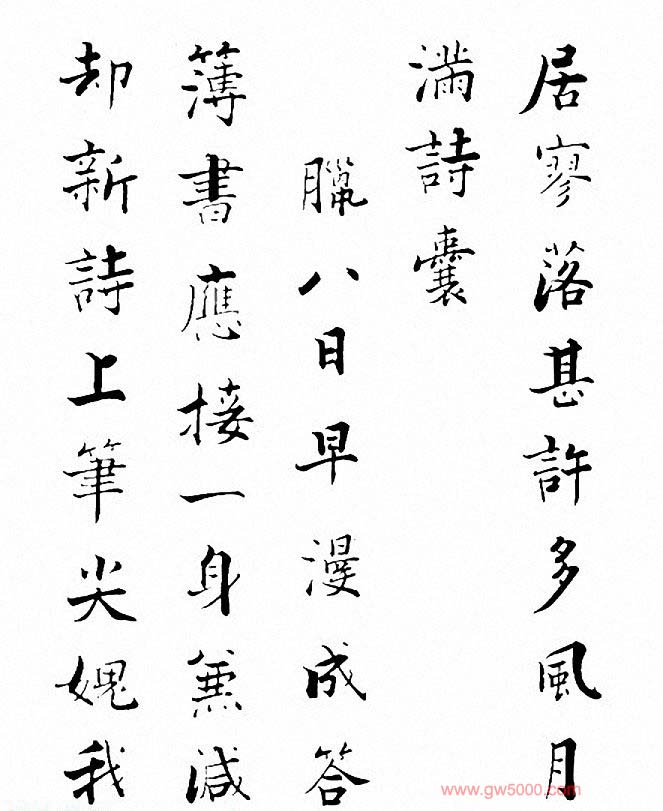 居寥落甚許多風月
滿詩囊
臘八日早漫成答
簿書應接一身兼減
却新詩上筆尖媿我
www.gw5000.com